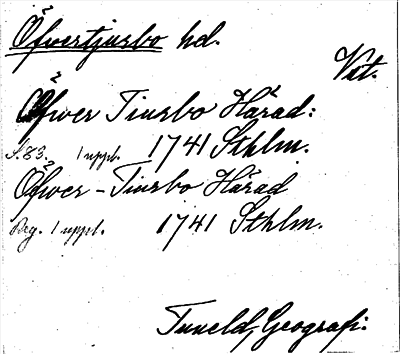 Öfvertjusbo hd.
Väst.
Öfver Tiursbo Härad:
S. 83. 1 uppl. 1741 Sthlm.
Öfwer-Tiursbo Härad
Reg. 1 uppl. 1741 Sthlm.
Tuneld, Geografi: